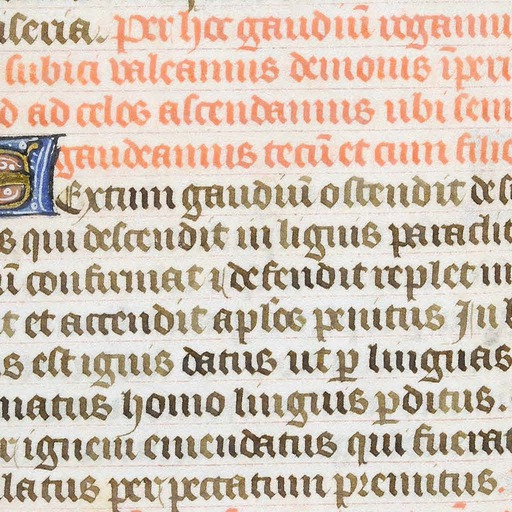 iseria. Per hoc gaudiū rogamu
subici valeamus demonis īperi
d ad celos ascendamus ubi sem
gaudeamus tecū et cum filio
Sextum gaudiū ostendit de s
s qui descendit in lignis paraclit
ū confirmat ⁊ defendit replet in
t et accendit apl̄os penitus In l
s est ignis datus ut ꝑ linguas
natus homo linguis ꝑditus.
r ignem emendatus qui fuerat
latus per peccatum premitus.